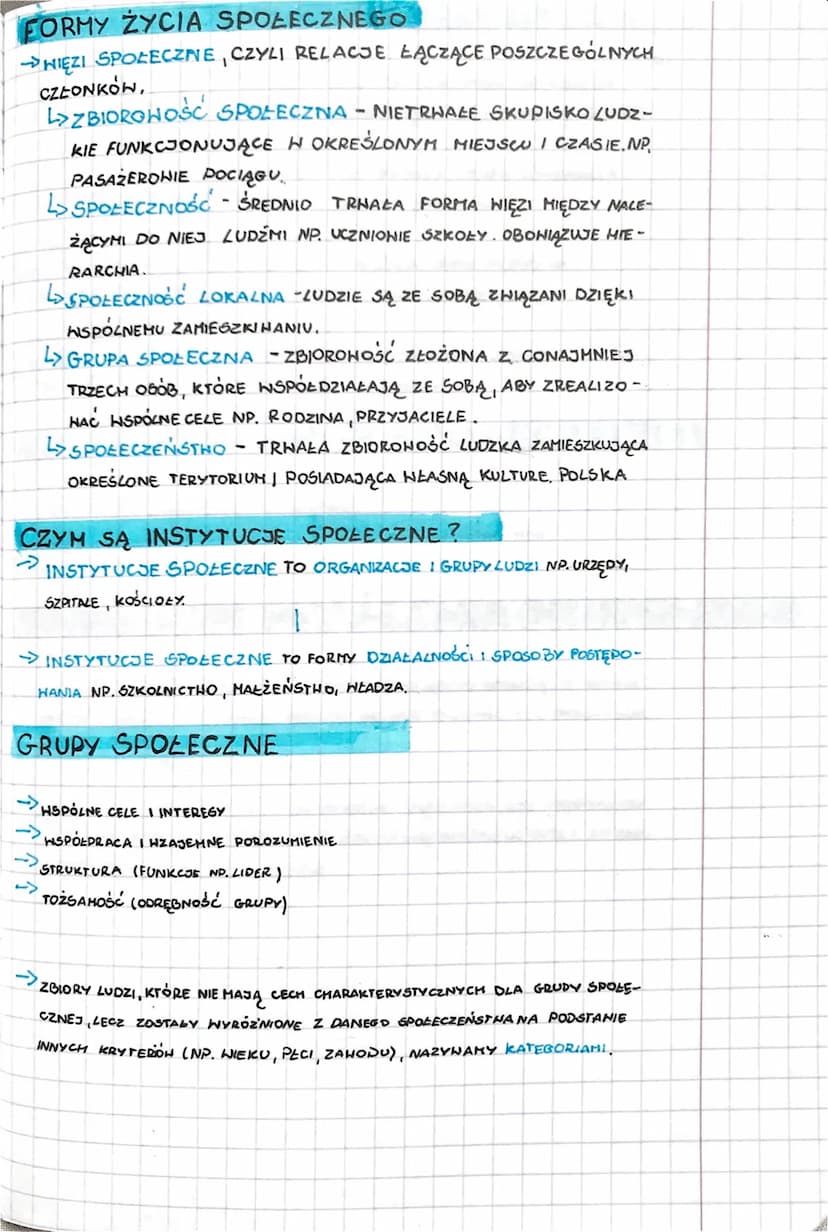 FORMY ŻYCIA SPOŁECZNEGO
→WIĘZI SPOŁECZNE, CZYLI RELACJE ŁĄCZĄCE POSZCZEGÓLNYCH
CZŁONKÓW.
↳ZBIOROWOŚĆ SPOŁECZNA - NIETRWAŁE SKUPISKO LUDZ-
KIE FUNKCJONUJĄCE W OKREŚLONYM MIEJSCU I CZASIE.NP.
PASAŻEROWIE POCIĄGU.
↳SPOŁECZNOŚĆ - ŚREDNIO TRWAŁA FORMA WIĘZI MIĘDZY NALE-
ŻĄCYMI DO NIEJ LUDŹMI NP. UCZNIOWIE SZKOŁY. OBOWIĄZUJE HIE-
RARCHIA.
↳SPOŁECZNOŚĆ LOKALNA -LUDZIE SĄ ZE SOBĄ ZWIĄZANI DZIĘKI
WSPÓLNEMU ZAMIESZKIWANIU.
↳GRUPA SPOŁECZNA - ZBIOROWOŚĆ ZŁOŻONA Z CONAJMNIEJ
TRZECH OSÓB, KTÓRE WSPÓŁDZIAŁAJĄ ZE SOBĄ, ABY ZREALIZO-
WAĆ WSPÓLNE CELE NP. RODZINA, PRZYJACIELE.
↳SPOŁECZEŃSTWO - TRWAŁA ZBIOROWOŚĆ LUDZKA ZAMIESZKUJĄCA
OKREŚLONE TERYTORIUM I POSIADAJĄCA WŁASNĄ KULTURE. POLSKA
CZYM SĄ INSTYTUCJE SPOŁECZNE?
→INSTYTUCJE SPOŁECZNE TO ORGANIZACJE I GRUPY LUDZI NP. URZĘDY,
SZPITALE, KOŚCIOŁY.
→INSTYTUCJE SPOŁECZNE TO FORMY DZIAŁALNOŚCI I SPOSOBY POSTĘPO-
WANIA NP. SZKOLNICTWO, MAŁŻEŃSTWO, WŁADZA.
GRUPY SPOŁECZNE
→WSPÓLNE CELE I INTERESY
→WSPÓŁPRACA I WZAJEMNE POROZUMIENIE
→STRUKTURA (FUNKCJE NP. LIDER)
→TOŻSAMOŚĆ (ODRĘBNOŚĆ GRUPY)
→ZBIORY LUDZI, KTÓRE NIE MAJĄ CECH CHARAKTERYSTYCZNYCH DLA GRUPY SPOŁE-
CZNEJ, LECZ ZOSTAŁY WYRÓŻNIONE Z DANEGO SPOŁECZEŃSTWA NA PODSTAWIE
INNYCH KRYTERIÓW (NP. WIEKU, PŁCI, ZAWODU), NAZYWAMY KATEGORIAMI.